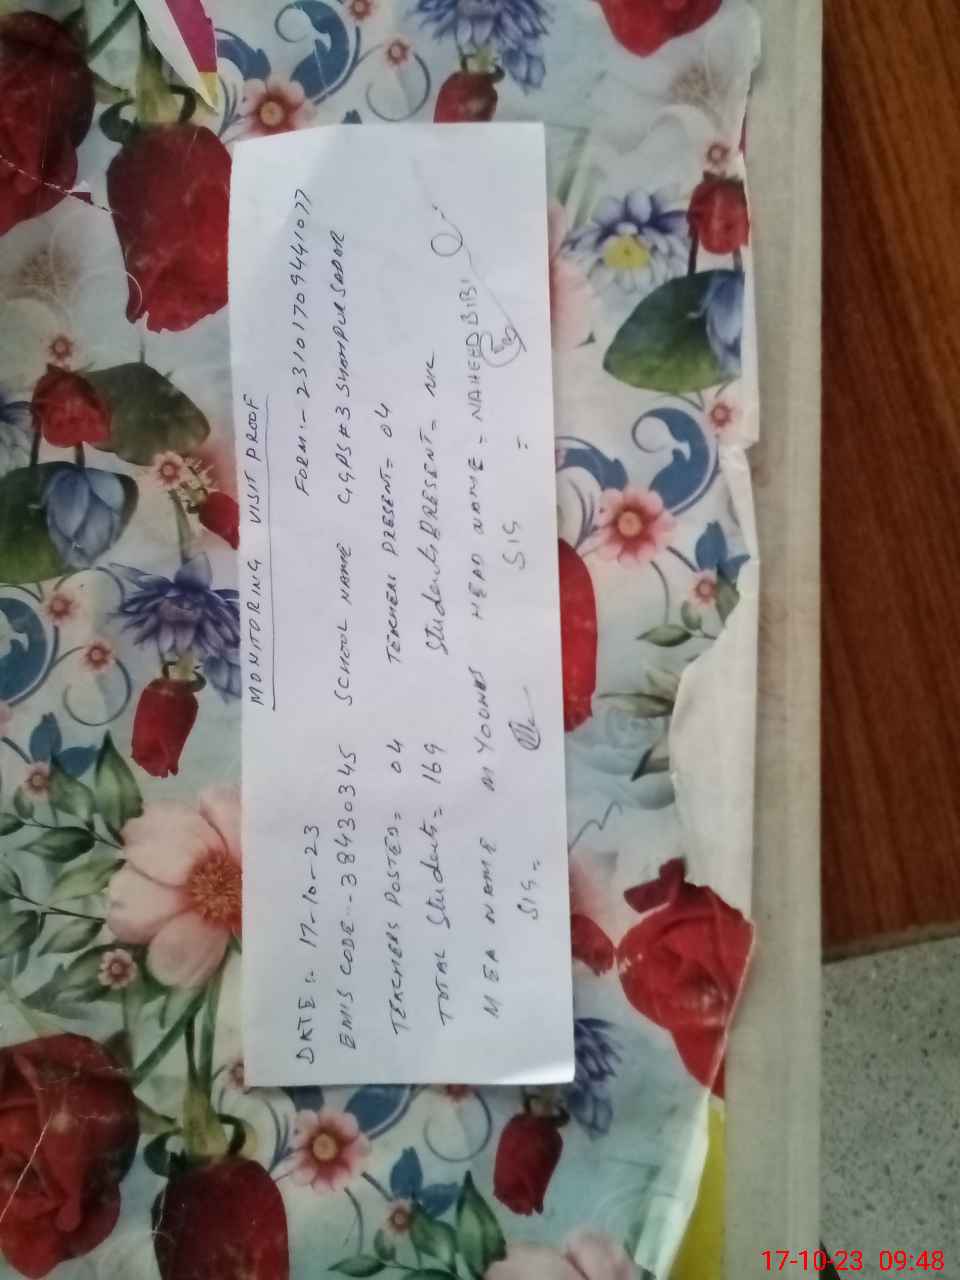 MONITORING VISIT PROOF
DATE:- 17-10-23 FORM:- 23101709441077
EMIS CODE:- 38430345 SCHOOL NAME GGPS#3 SHAMPUR SADAR
TEACHERS POSTED= 04 TEACHERS PRESENT= 04
TOTAL Students= 169 Students PRESENT= NIL
MEA NAME M YOUNAS HEAD NAME = NAHEED BIBI
SIG= SIG =
17-10-23 09:48